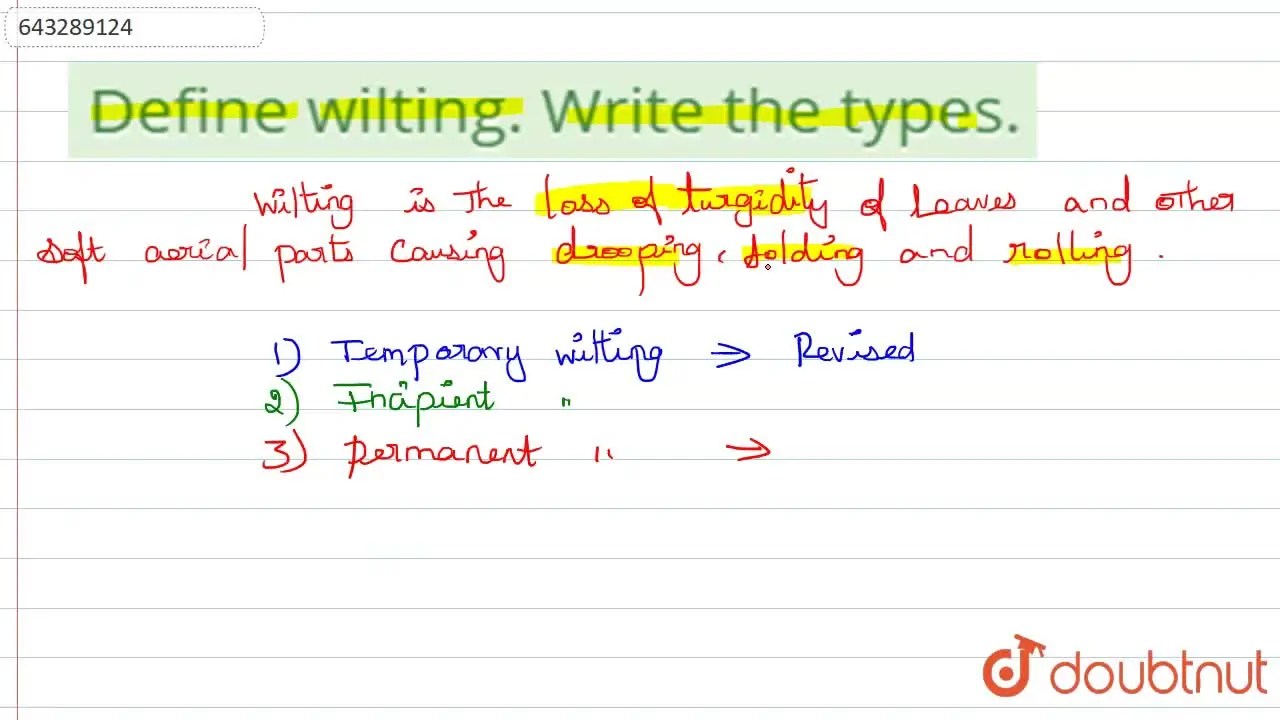 643289124
Define wilting. Write the types.
Wilting is The loss of turgidity of Leaves and other
soft aerial parts causing drooping, folding and rolling.
1) Temporary wilting → Revised
2) Incipient "
3) Permanent " →
doubtnut